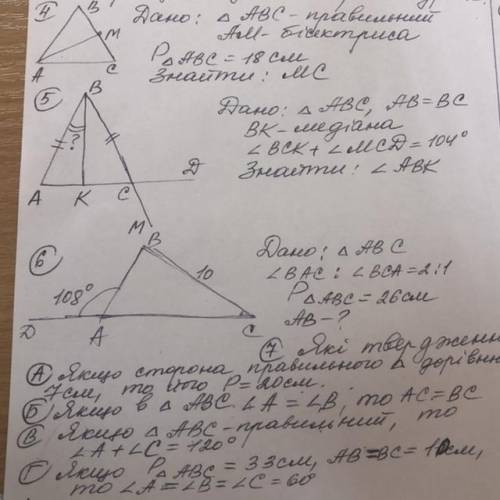 4
B
M
A
C
Дано: △ ABC - правильний
AM - бісектриса
P△ABC = 18 см
Знайти: MC
5
B
?
A
K
C
D
M
Дано: △ ABC, AB = BC
BK - медіана
∠BCK + ∠MCD = 104°
Знайти: ∠ABK
6
B
10
108°
D
A
C
Дано: △ ABC
∠BAC : ∠BCA = 2:1
P△ABC = 26 см
AB - ?
7 Які твердженн
А Якщо сторона правильного △ дорівню
7см, то його P = 20см.
Б Якщо в △ ABC ∠A = ∠B, то AC = BC
В Якщо △ ABC - правильний, то
∠A + ∠C = 120°
Г Якщо P△ABC = 33см, AB = BC = 10см,
то ∠A = ∠B = ∠C = 60°